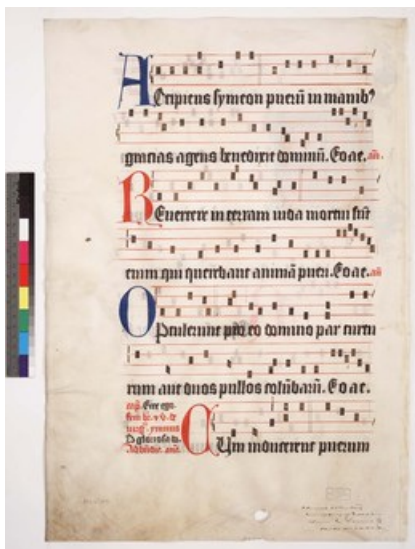 Accipiens symeon pueru̅ in manibꝰ
gracias agens benedixit dominu̅. Eoae. an̅.
Reuertere in terram iuda mortui su̅t
enim qui querebant anima̅ pueri. Eoae. an̅
Optulerunt pro eo domino par turtu
rum aut duos pullos colu̅baru̅. Eoae.
Ecce ego
Cum inducerent puerum